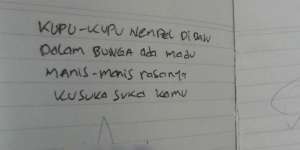 KUPU-KUPU NEMPEL DI DAU
DALAM BUNGA ada madu
MANIS-manis rasanya
KUSUKA SUKA kamu